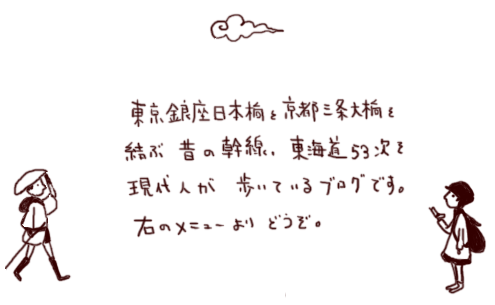 東京銀座日本橋と京都三条大橋を
結ぶ 昔の幹線、東海道53次を
現代人が 歩いているブログです。
右のメニューより どうぞ。